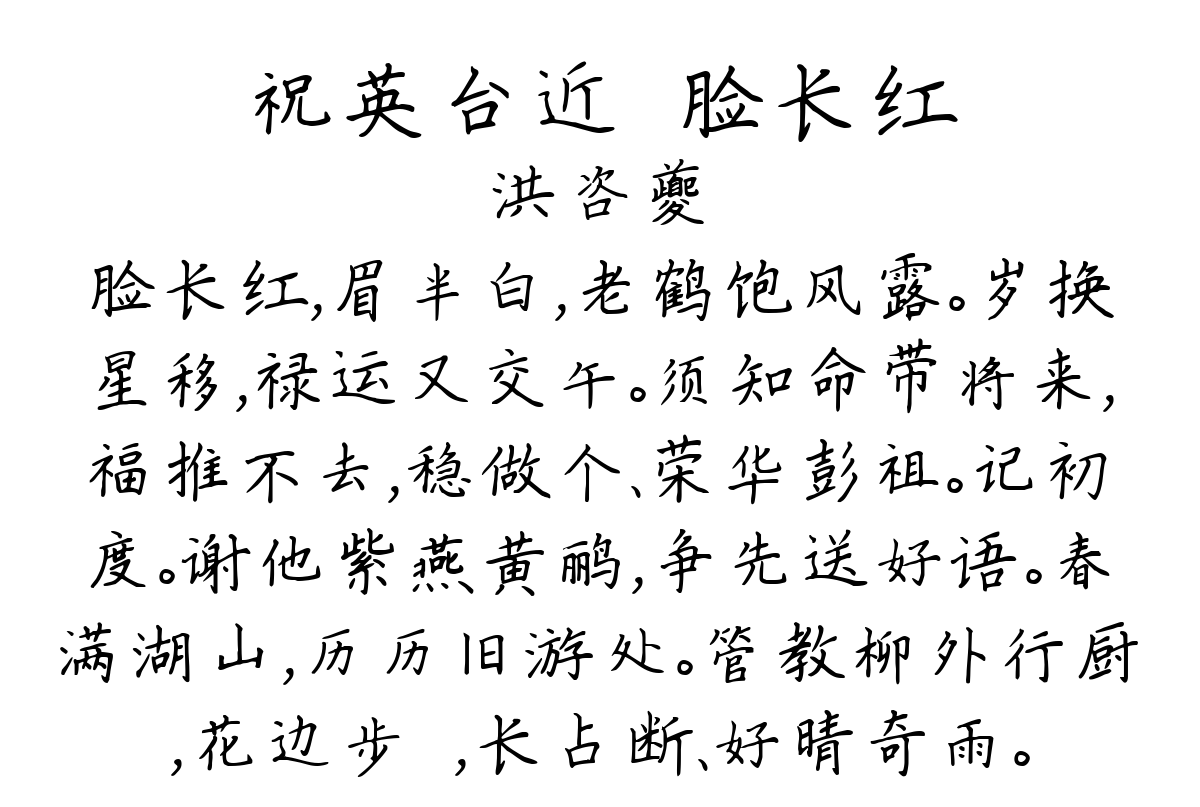 祝英台近 脸长红
洪咨夔
脸长红,眉半白,老鹤饱风露。岁换
星移,禄运又交午。须知命带将来,
福推不去,稳做个、荣华彭祖。记初
度。谢他紫燕黄鹂,争先送好语。春
满湖山,历历旧游处。管教柳外行厨
,花边步 ,长占断、好晴奇雨。